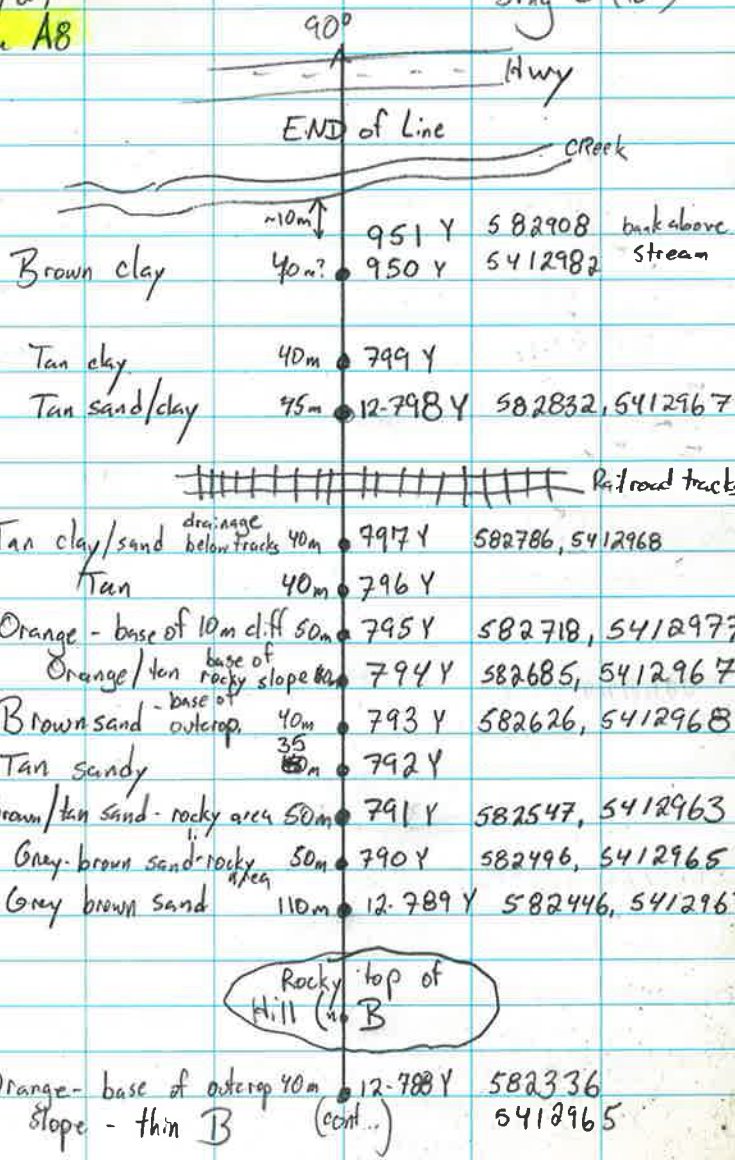 A8
90°
Hwy
END of Line
CReek
~10m 951 Y 582908 bank above
Brown clay 40m? 950 Y 5412982 stream
Tan clay 40m 799 Y
Tan sand/clay 45m 12-798 Y 582832, 5412967
Railroad tracks
Tan clay/sand drainage below tracks 40m 797 Y 582786, 5412968
Tan 40m 796 Y
Orange - base of 10m cliff 50m 795 Y 582718, 5412977
Orange/tan base of rocky slope 794 Y 582685, 5412967
Brown sand - base of outcrop 40m 793 Y 582626, 5412968
Tan sandy 35 m 792 Y
Brown/tan sand - rocky area 50m 791 Y 582547, 5412963
Grey-brown sand - rocky area 50m 790 Y 582496, 5412965
Grey brown sand 110m 12-789 Y 582446, 541296
Rocky top of
Hill (no B
Orange - base of outcrop 40m 12-788 Y 582336
Slope - thin B (cont...) 5412965